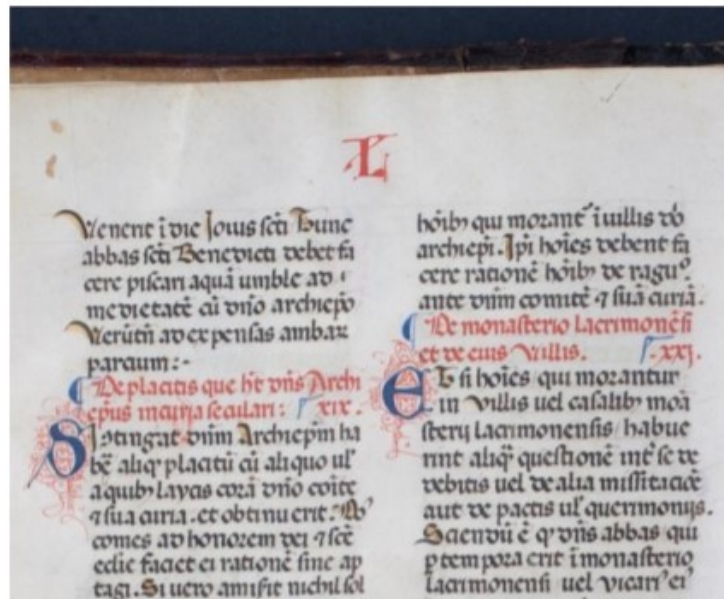 L
Venent ĩ die Iouis sc̃ti Tunc
abbas sc̃ti Benedicti debet fa
cere piscari aquã umble ad
medietatẽ cũ dño archiepõ
Verũtñ ad expensas ambaz
parcium:-
De placitis que hẽt dñs Archi
ep̃us in curia seculari: xix.
Si ptingat dñm Archiep̃m ha
bẽ aliqᵈ placitũ cũ aliquo ul'
a quibȝ laycis corã dño cõite
⁊ sua curia. et obtinuerit.
comes ad honorem dei ⁊ scẽ
edie faciet ei rationẽ sine ap
tagi. Si uero amisit nichil sol
hoĩbȝ qui morant' ĩ uillis dõ
archiepĩ. Ipi hoĩes debent fa
cere rationẽ hoĩbȝ de raguᵒ
ante dñm comitẽ ⁊ suã curiã.
De monasterio lacrimonẽsi
et de eius villis. .xxj.
Et si hoĩes qui morantur
in villis uel casalibȝ moã
sterij lacrimonensis habue
rint aliqᵃ questionẽ int' se de
debitis uel de alia
aut de pactis ul' querimonijs.
Sciendũ ẽ qᵈ dñs abbas qui
p tempora erit ĩ monasterio
lacrimonensi uel vicari' ei'